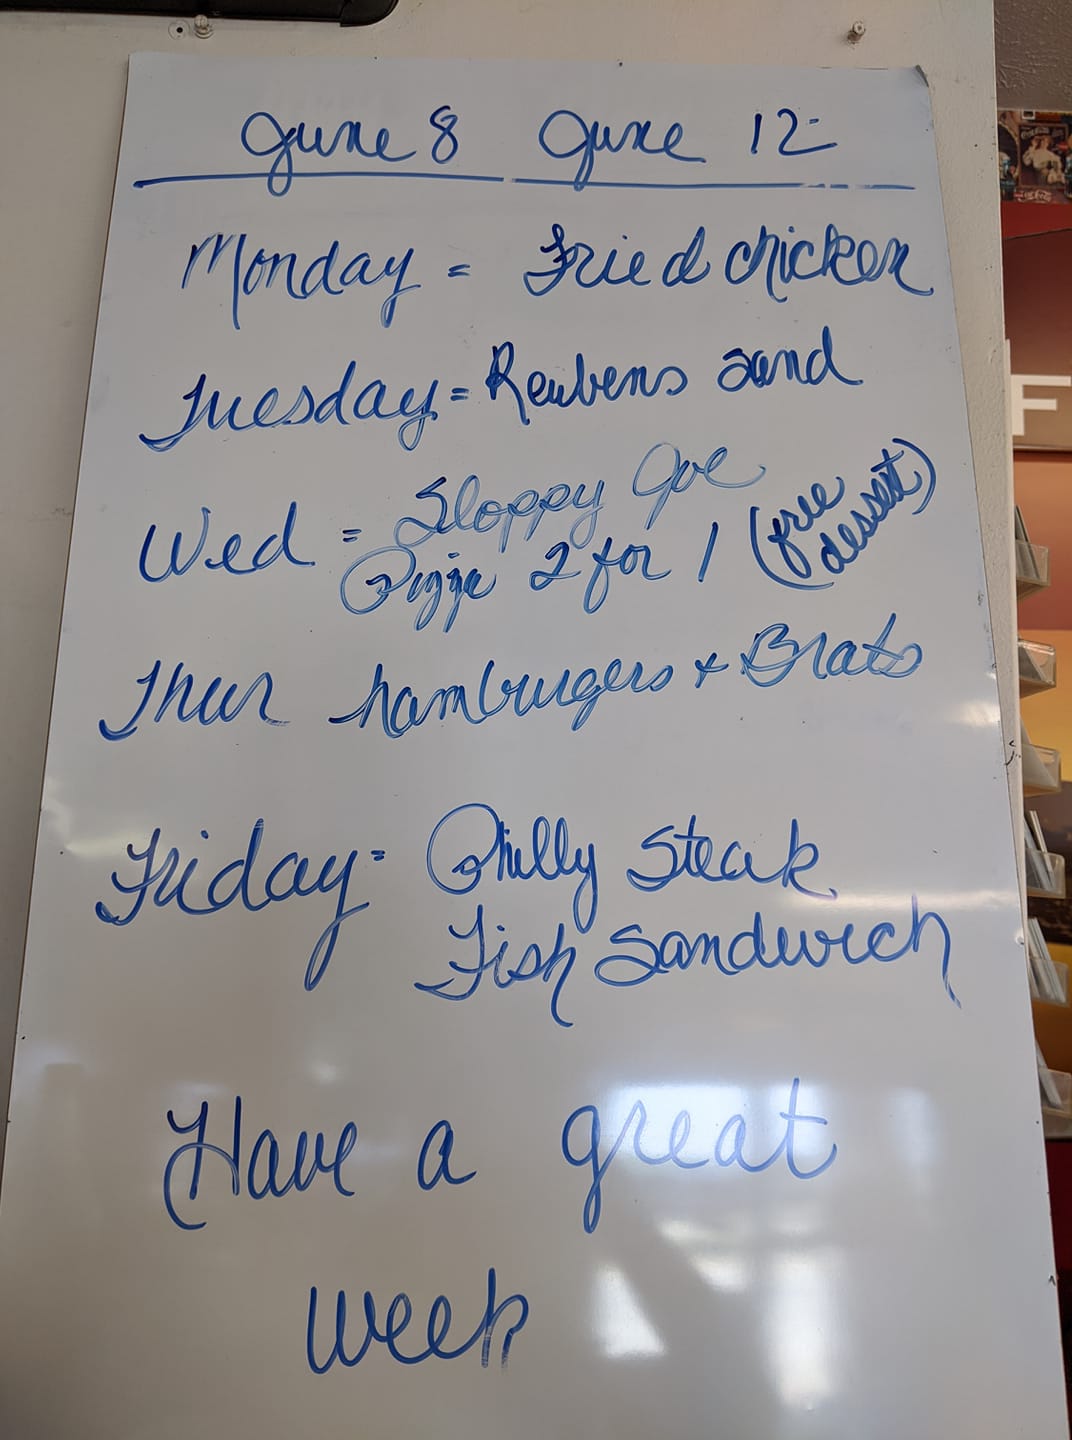 June 8 June 12
Monday = Fried chicken
Tuesday = Reubens sand
Wed = Sloppy Joe
Pizza 2 for 1 (free
dessert)
Thur hamburgers + Brats
Friday = Philly Steak
Fish Sandwich
Have a great
week
F